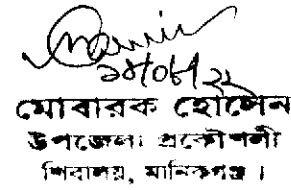 ১৪/০৬/২২
মোবারক হোসেন
উপজেলা প্রকৌশলী
শিবালয়, মানিকগঞ্জ।